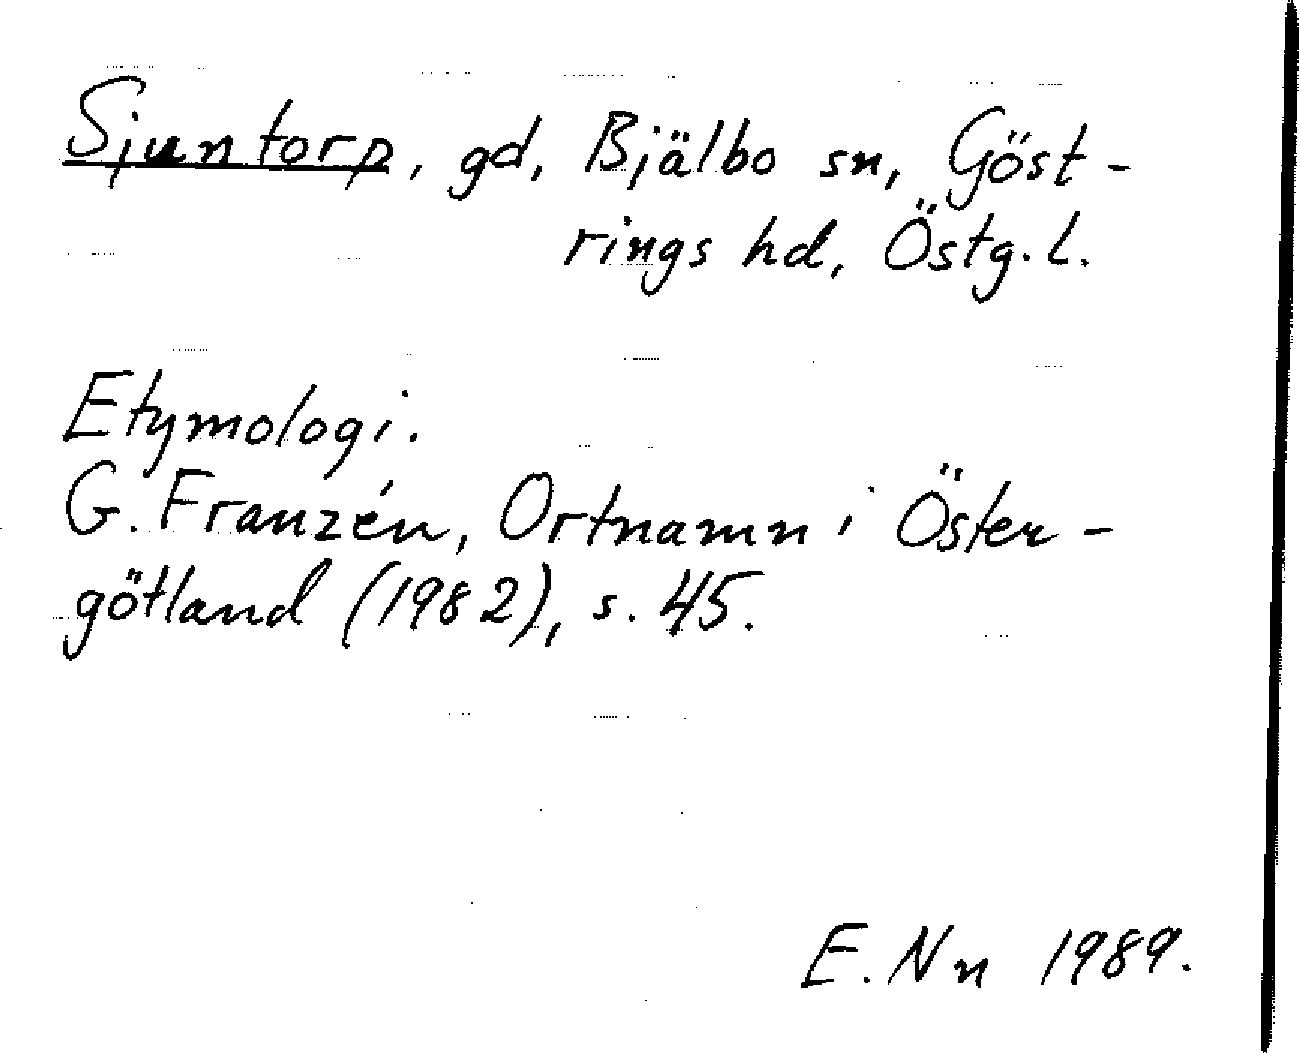 Sjuntorp, gd, Bjälbo sn, Göst-
rings hd, Östg. l.
Etymologi.
G. Franzén, Ortnamn i Öster-
götland (1982), s. 45.
E. Nn 1989.